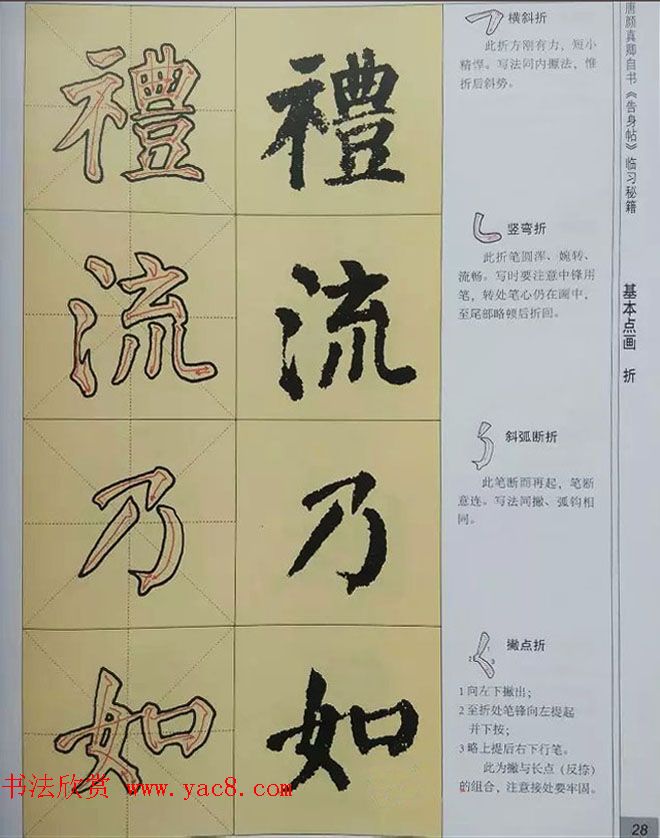 禮 禮
横斜折
此折方刚有力，短小
精悍。写法同内擫法，惟
折后斜势。
流 流
竖弯折
此折笔圆浑、婉转、
流畅。写时要注意中锋用
笔，转处笔心仍在画中，
至尾部略顿后折回。
乃 乃
斜弧断折
此笔断而再起，笔断
意连。写法同撇、弧钩相
同。
如 如
撇点折
1 2 3
1 向左下撇出；
2 至折处笔锋向左提起
并下按；
3 略上提后右下行笔。
此为撇与长点（反捺）
的组合，注意接处要牢固。
唐颜真卿自书《告身帖》临习秘籍
基本点画 折
28
书法欣赏 www.yac8.com